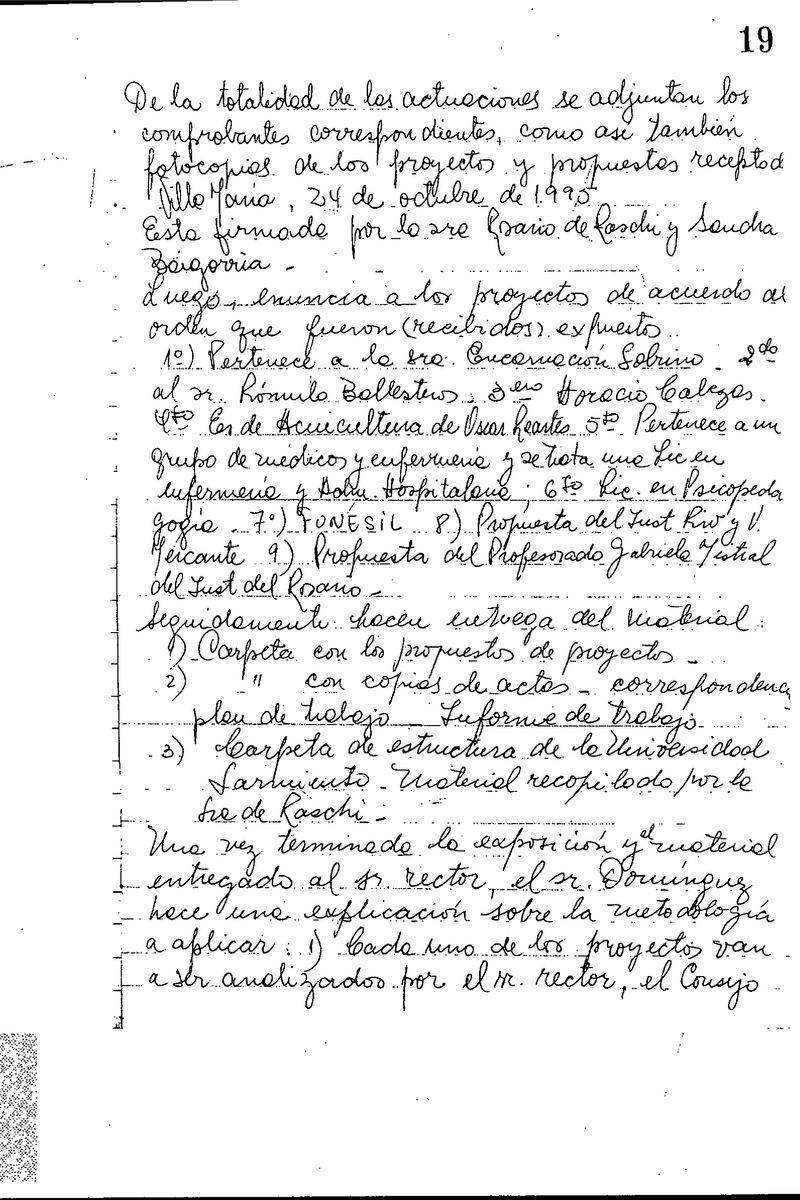 19
De la totalidad de las actuaciones se adjuntan los
comprobantes correspondientes, como asi también
fotocopias de los proyectos y propuestas receptad
Villa María, 24 de octubre de 1995
Esta firmada por la sra Rosario de Raschi y Sandra
Baigorria -
Luego, enuncia a los proyectos de acuerdo al
orden que fueron (recibidos) expuesto.
1º) Pertenece a la sra. Encarnación Sobrino. 2do
al sr. Rómulo Ballesteros. 3ero Horacio Cabezas.
4to Es de Acuicultura de Oscar Reartes 5to Pertenece a un
grupo de médicos y enfermeria y se trata una Lic en
enfermeria y Adm. Hospitalaria; 6to Lic. en Psicopeda
gogía. 7º) FUNESIL 8) Propuesta del Inst Riv y V.
Mercante 9) Propuesta del Profesorado Gabriela Mistral
del Inst del Rosario -
Seguidamente hacen entrega del material:
1) Carpeta con los propuestos de proyectos -
2) " con copias de actas - correspondenc
plan de trabajo - Informe de trabajo
3) Carpeta de estructura de la Universidad
Sarmiento - Material recopilado por la
Sra de Raschi -
Una vez terminada la exposición y el material
entregado al sr. rector, el sr. Domínguez
hace una explicación sobre la metodología
a aplicar: 1) Cada uno de los proyectos van
a ser analizados por el sr. rector, el Consejo